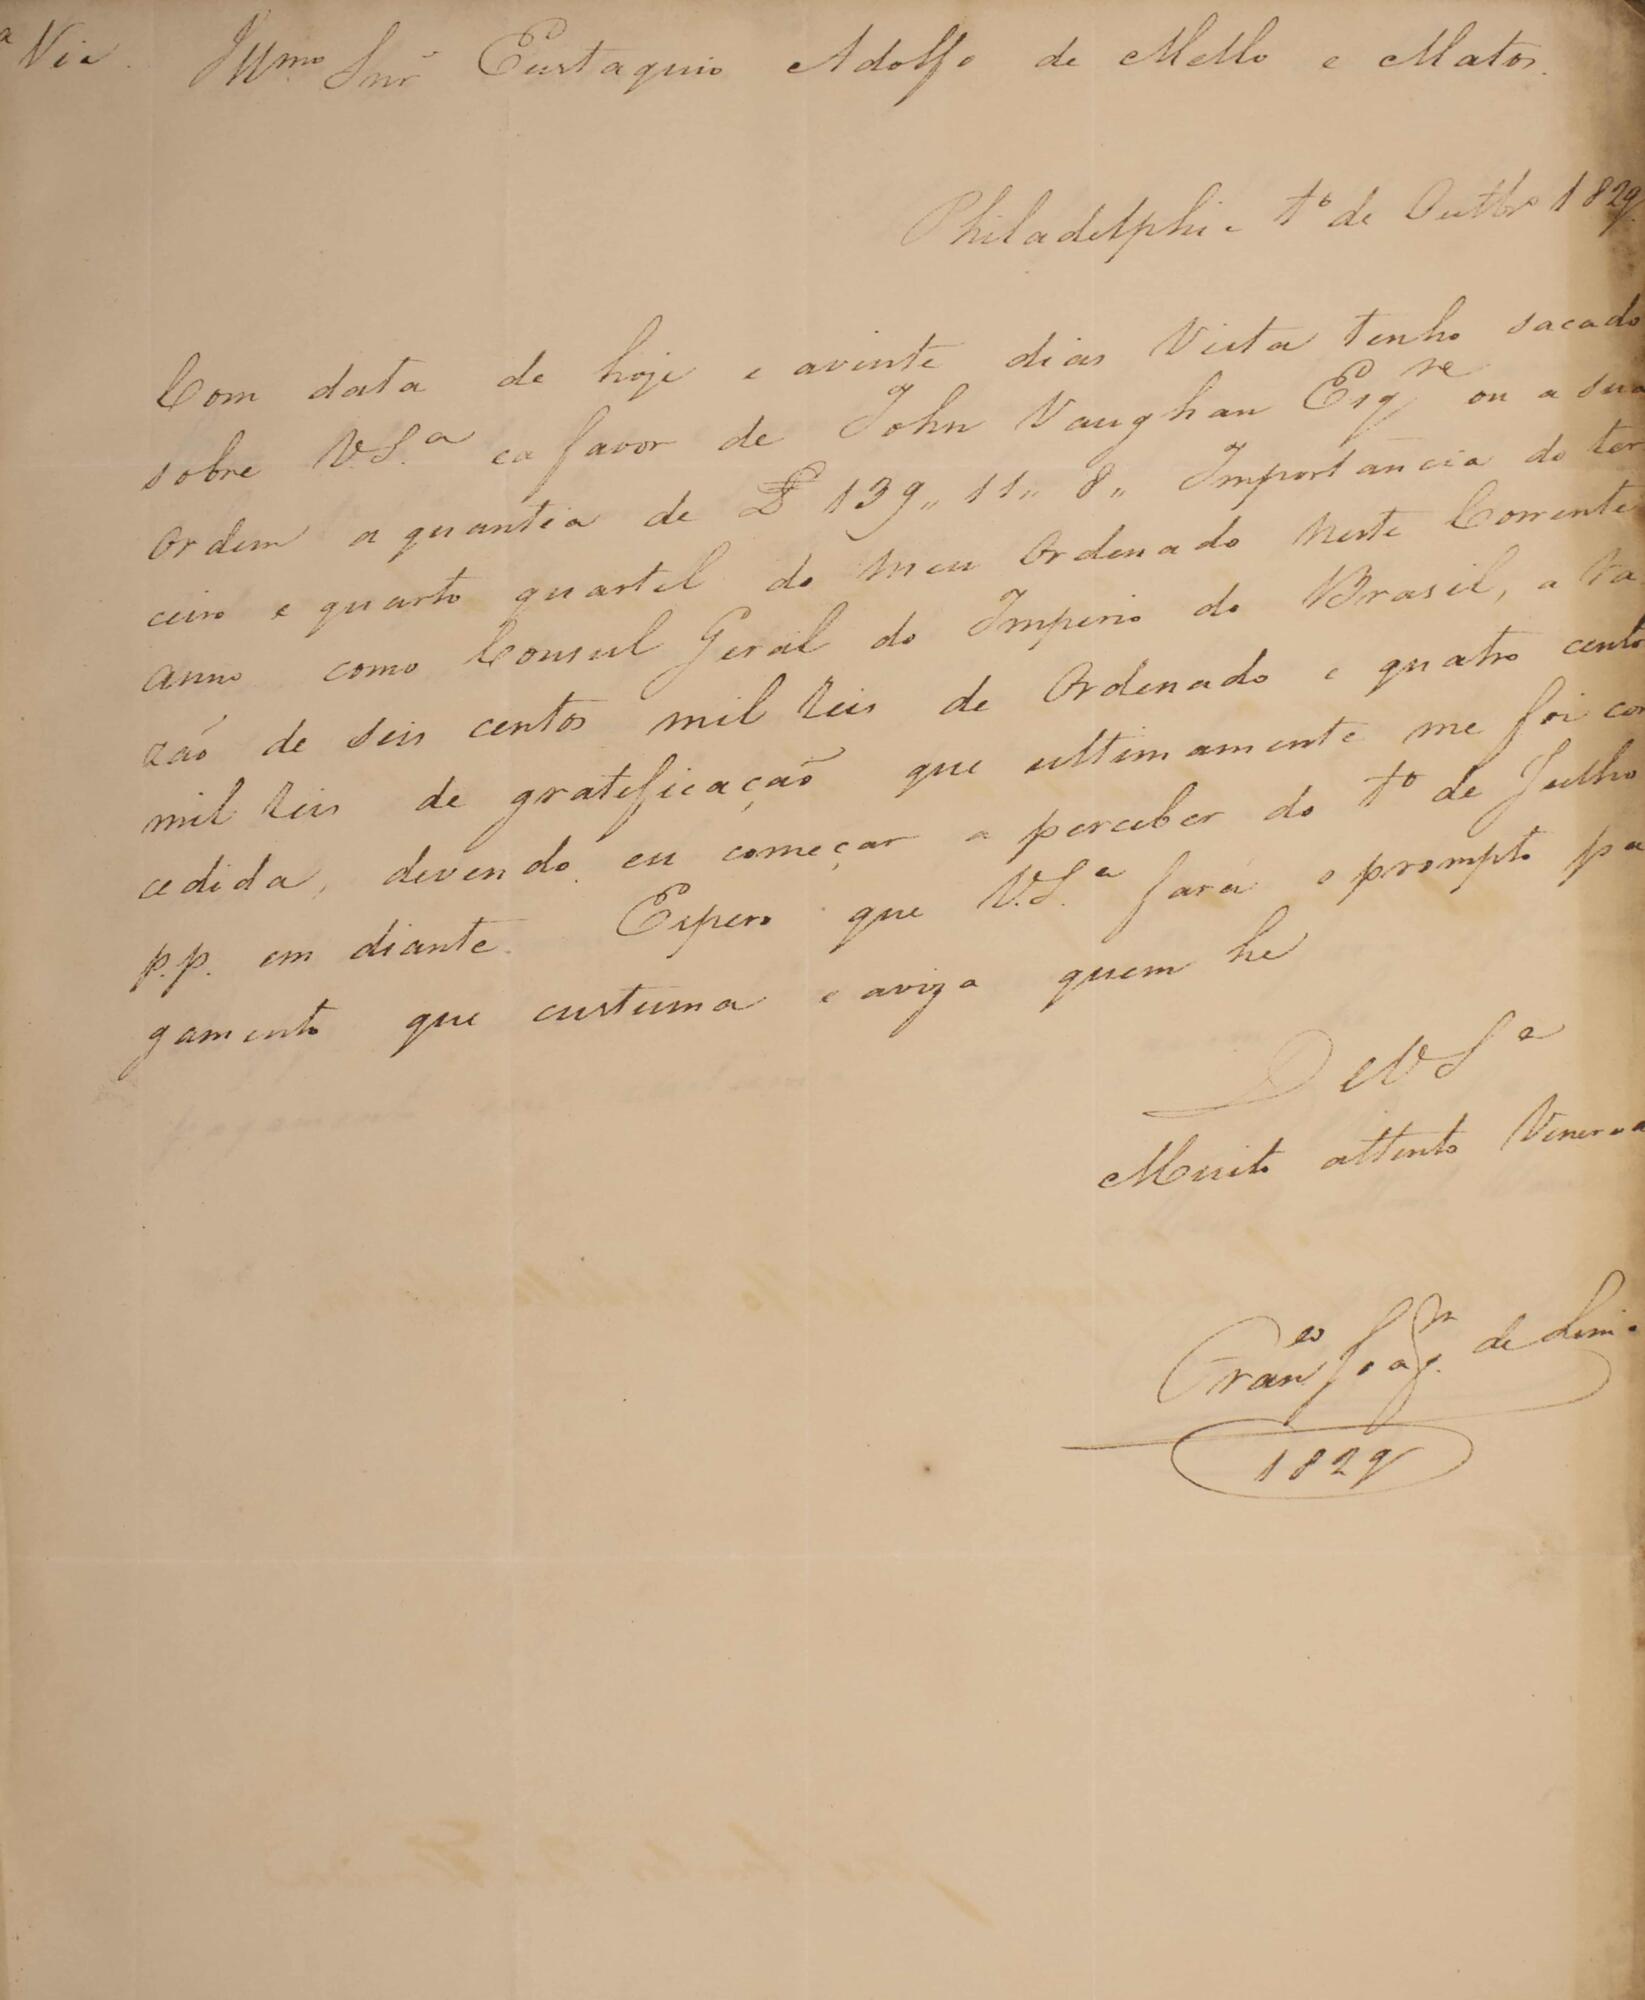 ª Via. Illmo Snr Eustaquio Adolfo de Mello e Matos.
Philadelphia 1º de Outbro 1829
Com data de hoje e avinte dias Vista tenho sacado
sobre V.S.ª ea favor de John Vaughan Esqre ou a sua
Ordem a quantia de £ 139,, 11,, 8,, Importancia do ter
ceiro e quarto quartel do meu Ordenado neste Corrente
anno como Consul Geral do Imperio do Brasil, a ra
zão de seis centos mil Reis de Ordenado e quatro cento
mil Reis de gratificação que ultimamente me foi con
cedida, devendo eu começar a perceber do 1º de Julho
p.p. em diante. Espero que V.S.ª fará o prompto pa
gamento que custuma e aviza quem he
De V Sª
Muito attento Venera
Franco Joaqm de Lima
1829